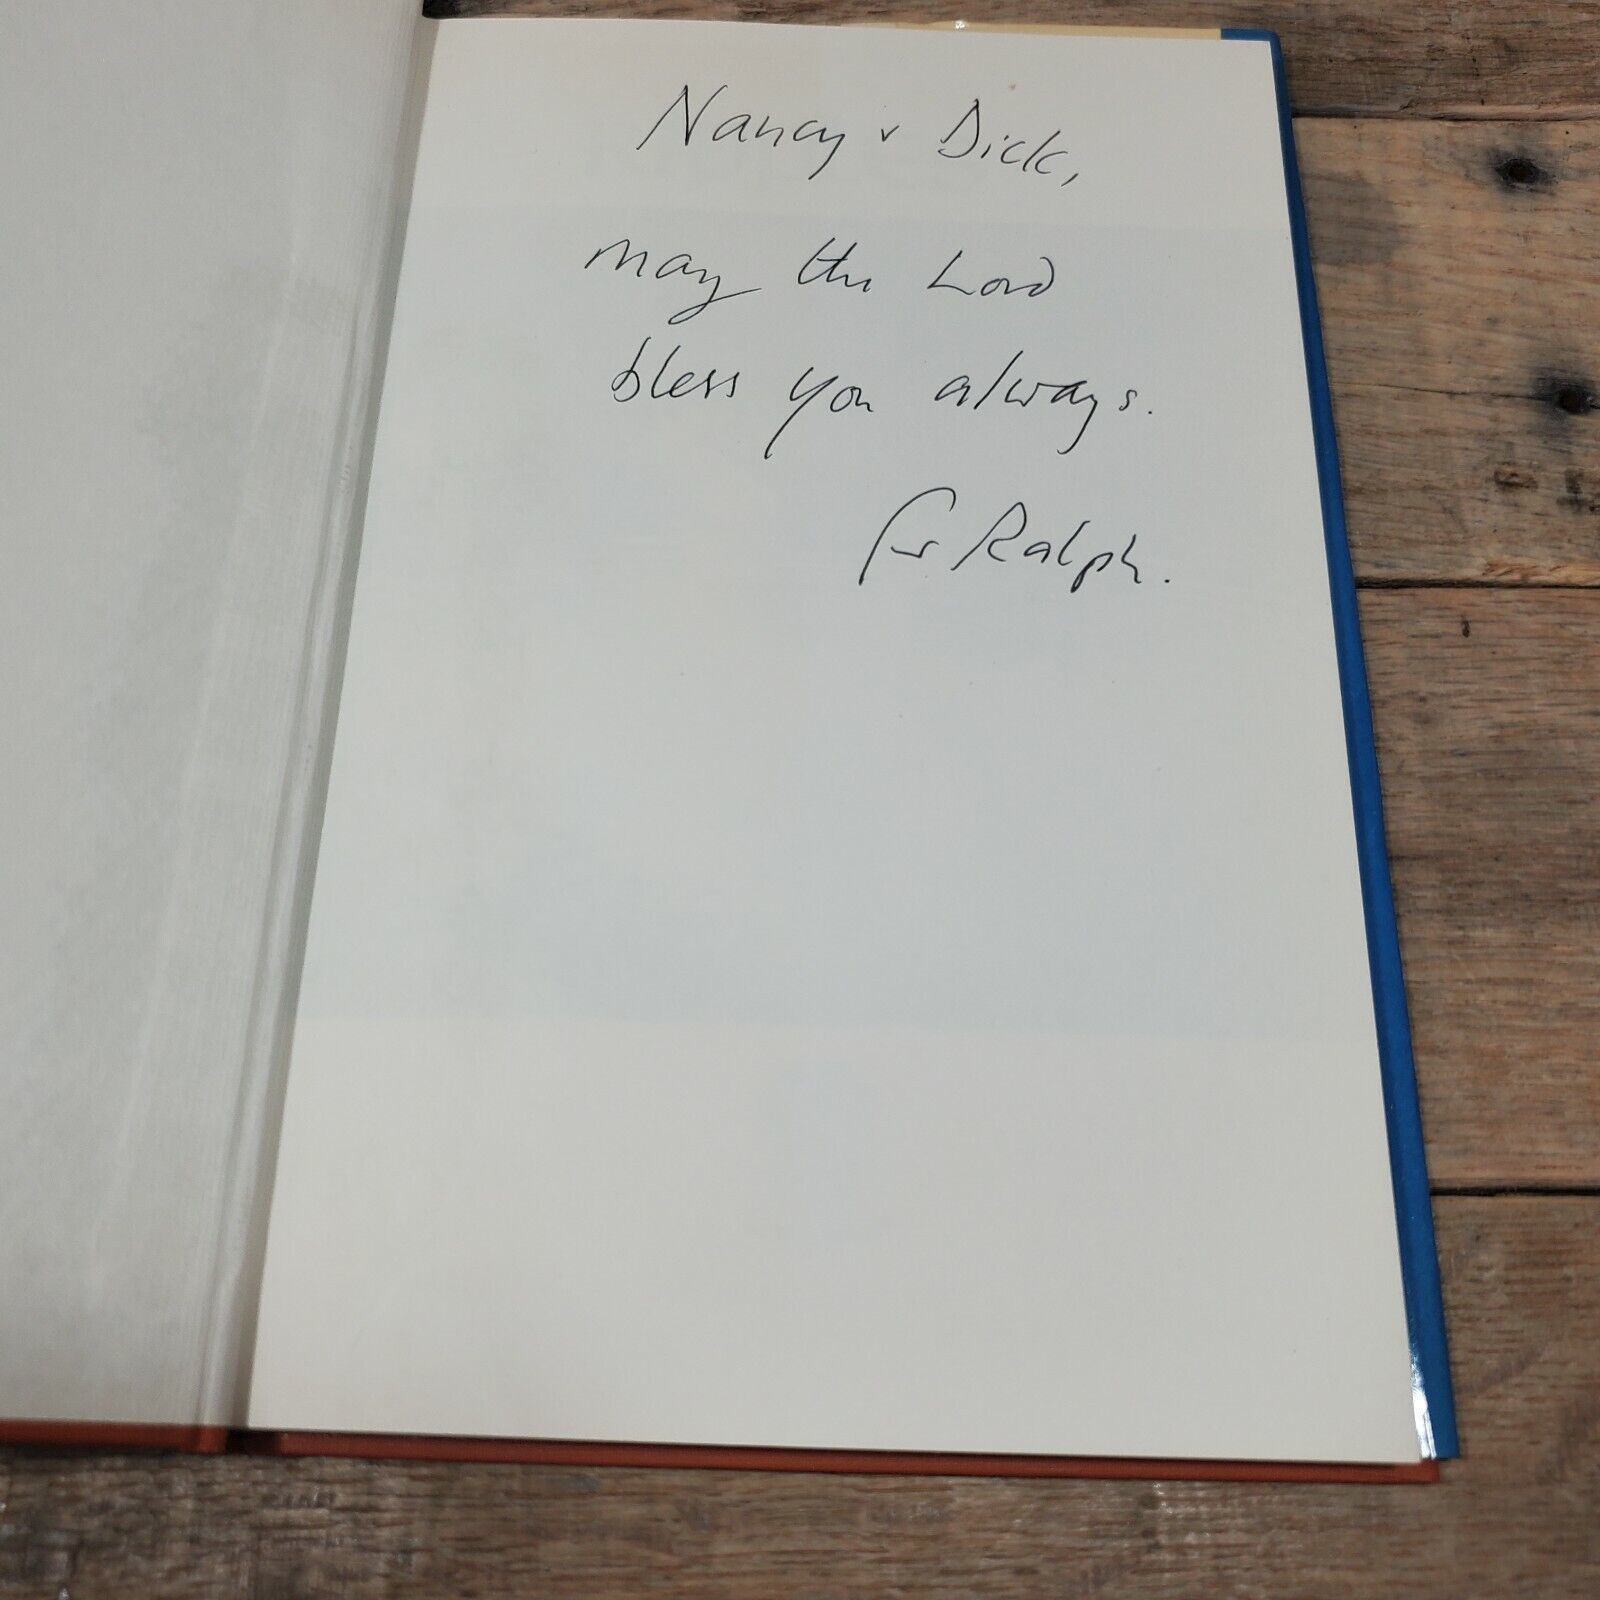 Nancy & Dick,
may the Lord
bless you always.
Fr Ralph.